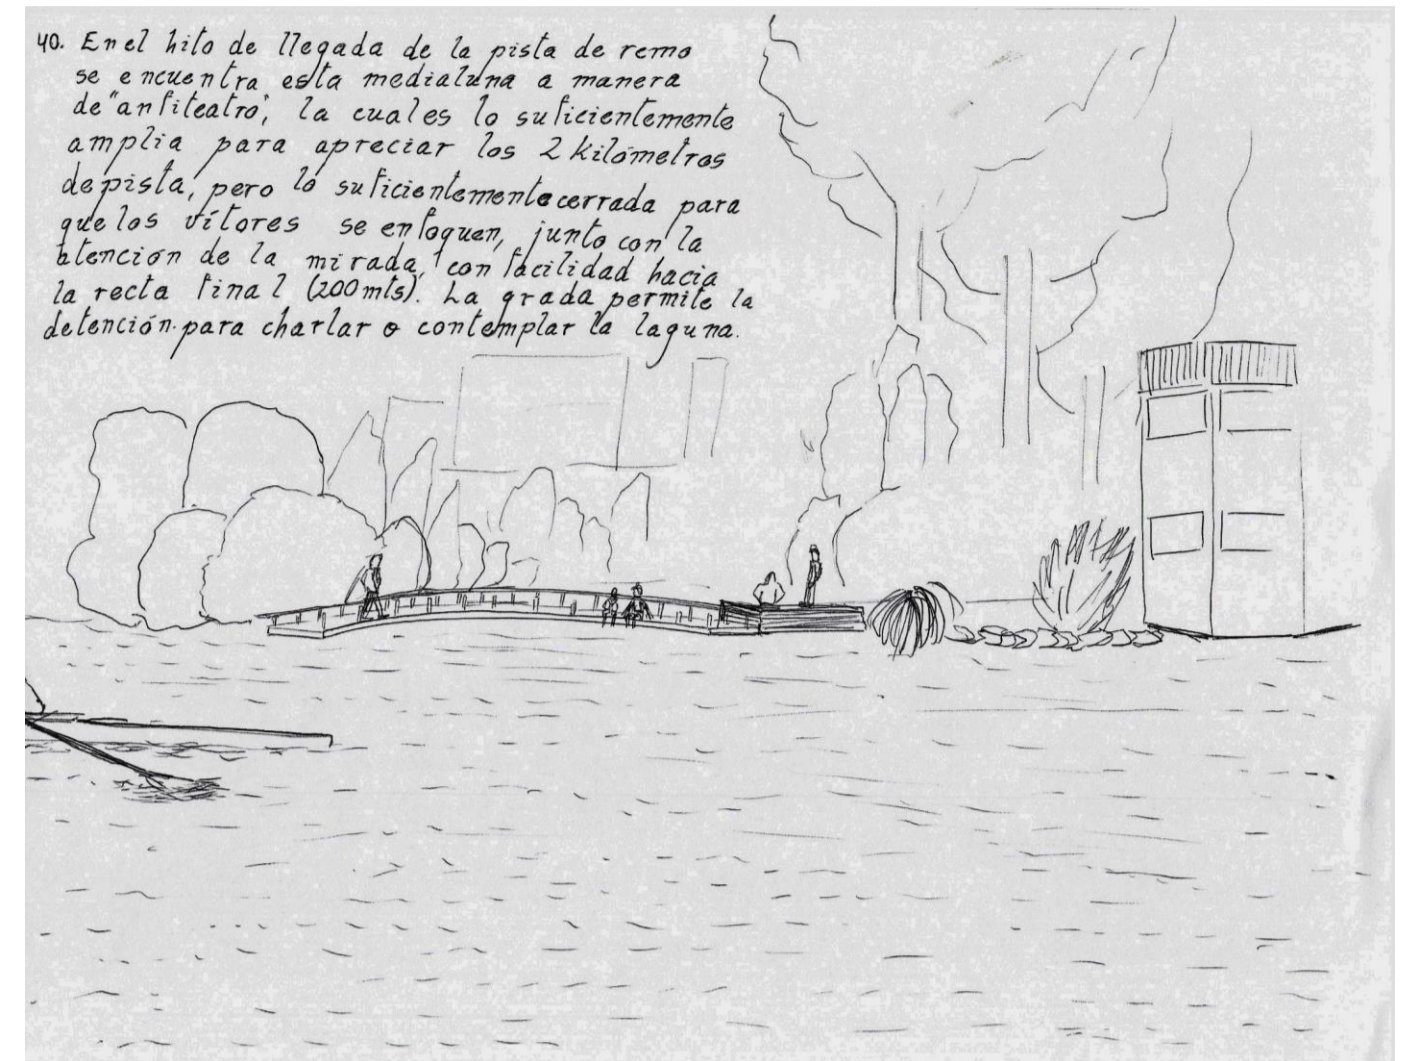 40. En el hito de llegada de la pista de remo
se encuentra esta medialuna a manera
de "anfiteatro", la cual es lo suficientemente
amplia para apreciar los 2 kilómetros
de pista, pero lo suficientemente cerrada para
que los vítores se enfoquen, junto con la
atención de la mirada, con facilidad hacia
la recta final (200 mts). La grada permite la
detención para charlar o contemplar la laguna.